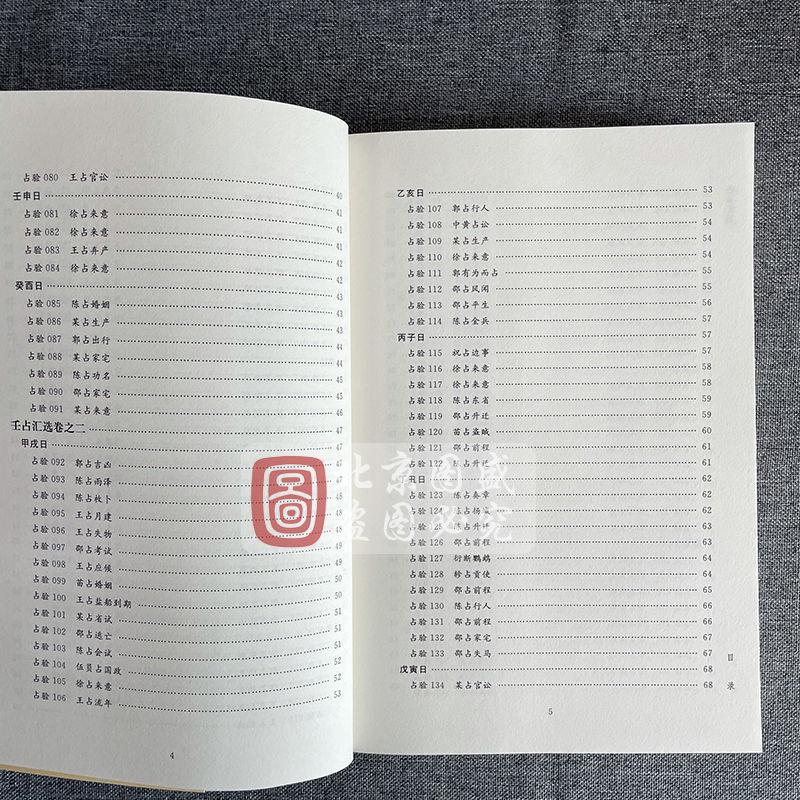 占验 080 王占官讼 40
壬申日 41
占验 081 徐占来意 41
占验 082 徐占来意 41
占验 083 王占弃产 42
占验 084 徐占来意 43
癸酉日 43
占验 085 陈占婚姻 43
占验 086 某占生产 44
占验 087 郭占出行 44
占验 088 某占家宅 44
占验 089 陈占功名 45
占验 090 邵占家宅 45
占验 091 某占来意 46
壬占汇选卷之二 47
甲戌日 47
占验 092 郭占吉凶 47
占验 093 陈占雨泽 48
占验 094 陈占枚卜 48
占验 095 王占月建 48
占验 096 王占失物 48
占验 097 邵占考试 49
占验 098 王占应候 50
占验 099 苗占婚姻 50
占验 100 王占盐船到期 50
占验 101 某占省试 51
占验 102 邵占逃亡 51
占验 103 陈占会试 51
占验 104 伍员占国政 52
占验 105 徐占来意 52
占验 106 王占流年 53
4
乙亥日 53
占验 107 郭占行人 53
占验 108 中黄占讼 54
占验 109 某占生产 54
占验 110 徐占来意 54
占验 111 郭有为而占 55
占验 112 邵占风闻 55
占验 113 邵占平生 55
占验 114 陈占金兵 57
丙子日 57
占验 115 祝占边事 57
占验 116 徐占来意 58
占验 117 徐占来意 58
占验 118 陈占东省 58
占验 119 邵占升迁 59
占验 120 苗占盗贼 60
占验 121 邵占前程 61
占验 122 陈占升迁 61
丁丑日 62
占验 123 陈占奏章 62
占验 124 占杨 62
占验 125 陈占升迁 63
占验 126 邵占前程 63
占验 127 衍断鹦鹉 64
占验 128 轸占贡使 64
占验 129 邵占前程 65
占验 130 陈占行人 66
占验 131 邵占前程 66
占验 132 邵占家宅 67
占验 133 邵占失马 67
戊寅日 68
占验 134 某占官讼 68
目录
5
北京图盛
盗图必究